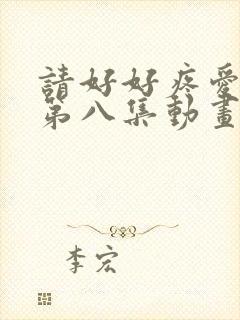 請好好疼愛
第八集動畫
李宏